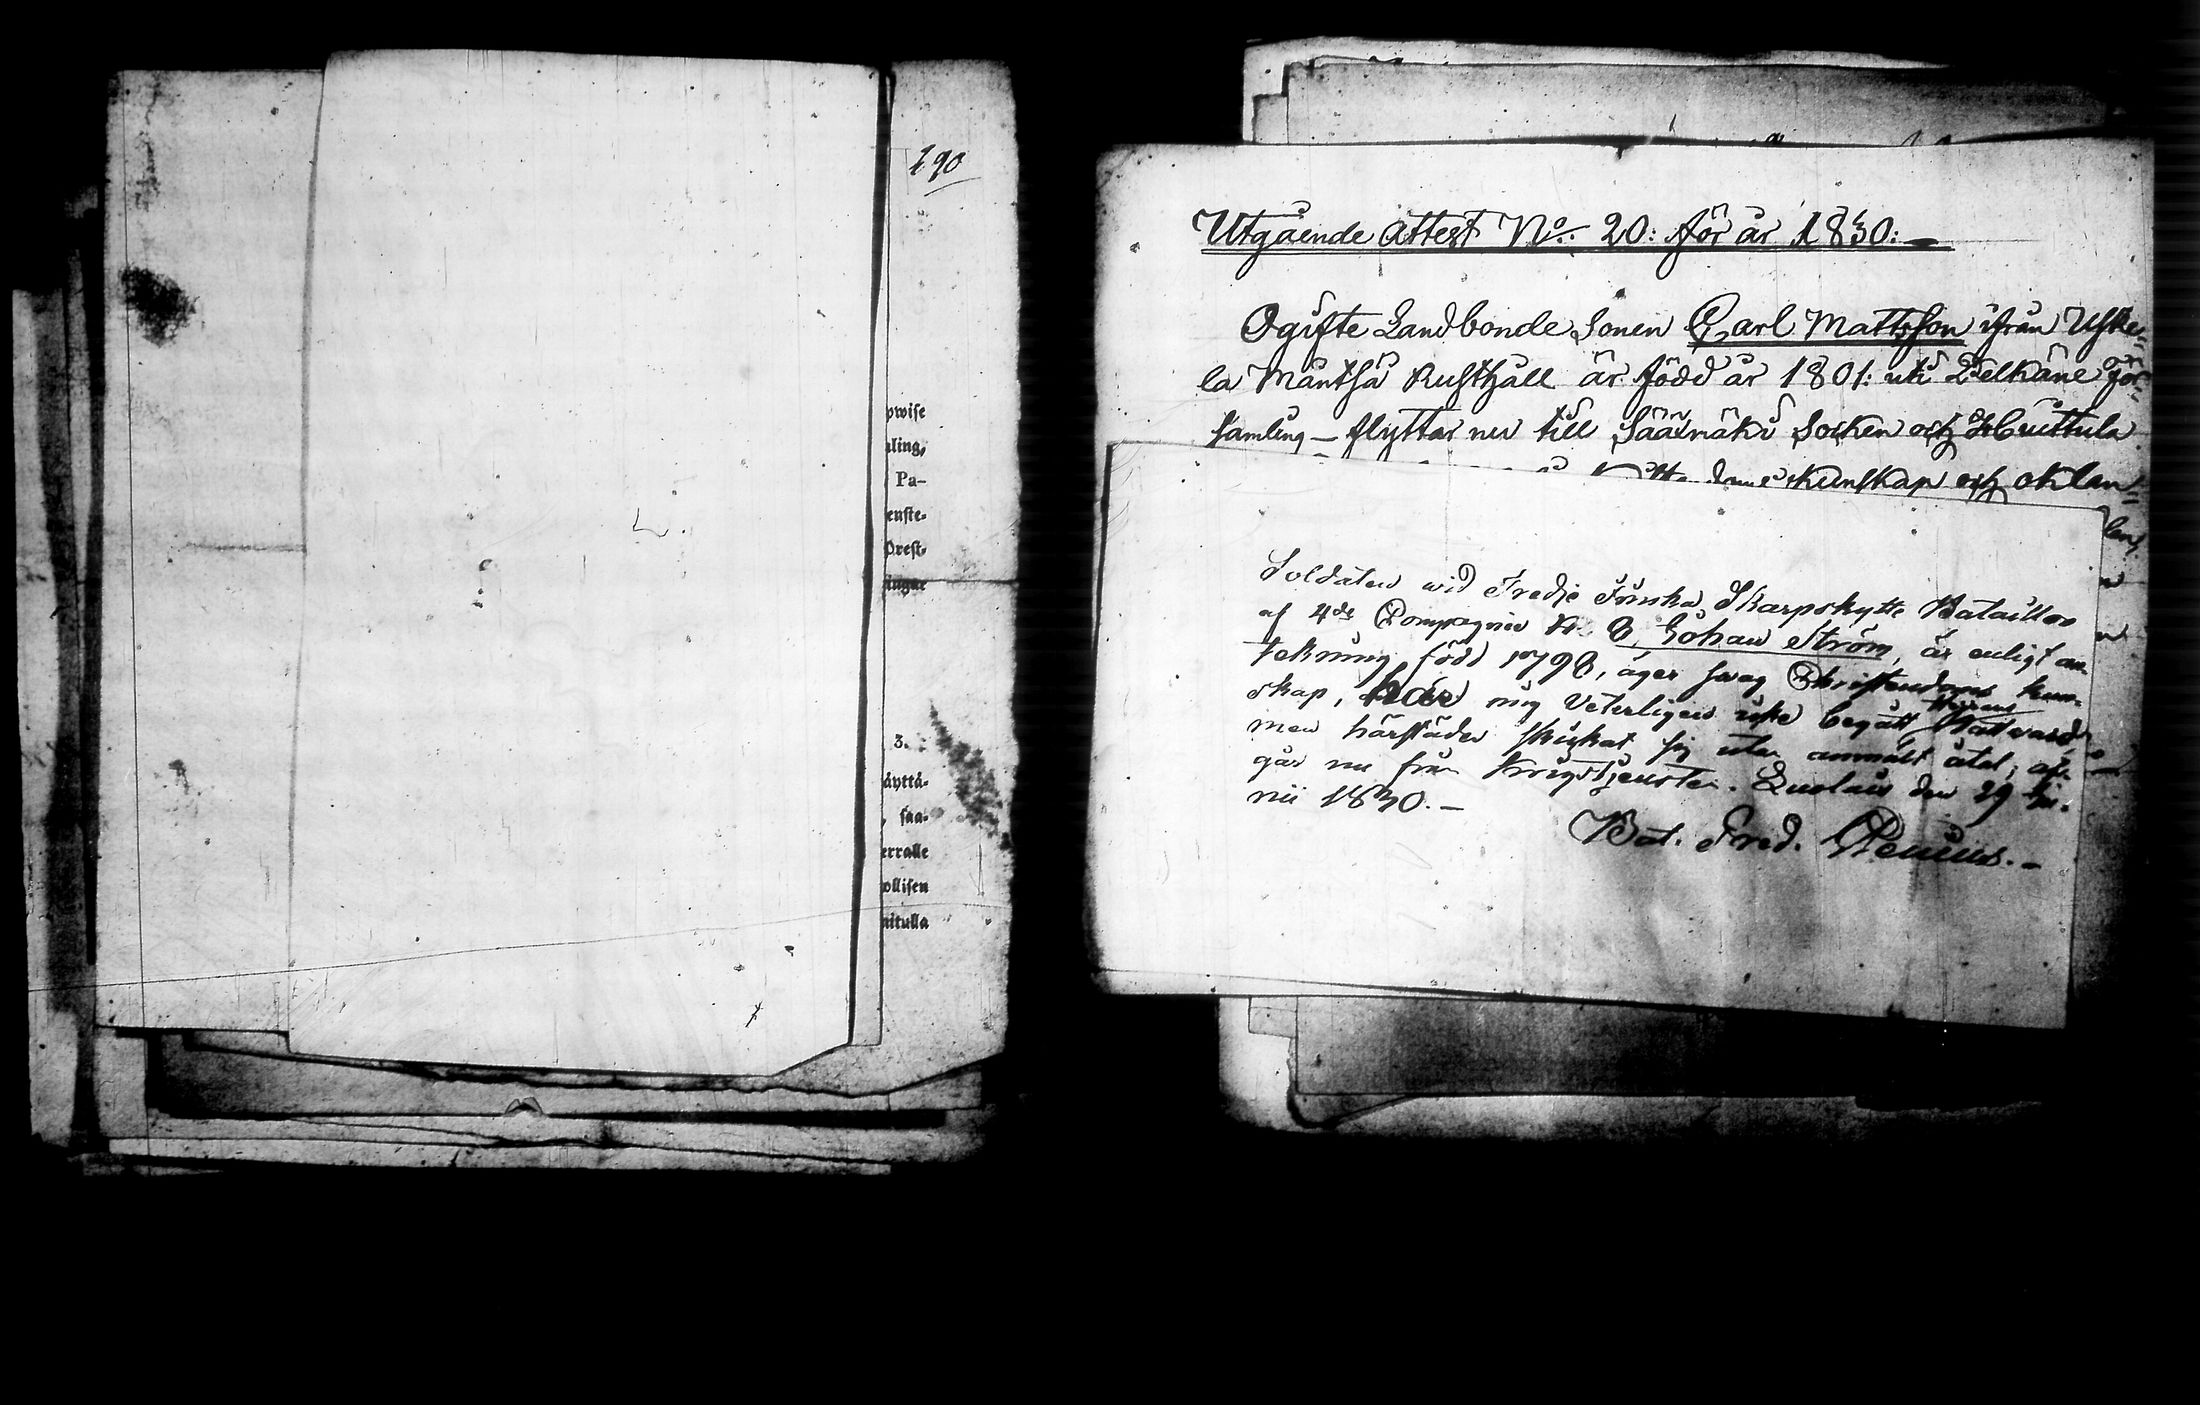 190
pwise
ling,
Pa-
enste-
Orest-
ingar
3.
äyttä-
, saa-
erralle
ollisen
nitulla
Utgående Attest No: 20: för år 1830:
Ogifte Landbonde Sonen Carl Mattsson ifrån Uske-
la Mäntsä Rusthåll är född år 1801: uti Pelkäne för-
samling – flyttar nu till Säärmäki Socken och Huittula
kunskap och oklan-
Soldaten wid Tredje Finska Skarpskytte Bataillon
af 4de Compagnie N. 8, Johan Ström, är enligt an-
tekning född 1798, äger swag Christendoms kun-
skap, har mig veterligen icke begått Herrens Nattvard,
men härstädes skickat sig utan anmält åtal; af-
går nu från Krigstjensten. den 29 Ju-
nii 1830. –
Bat. Pred.